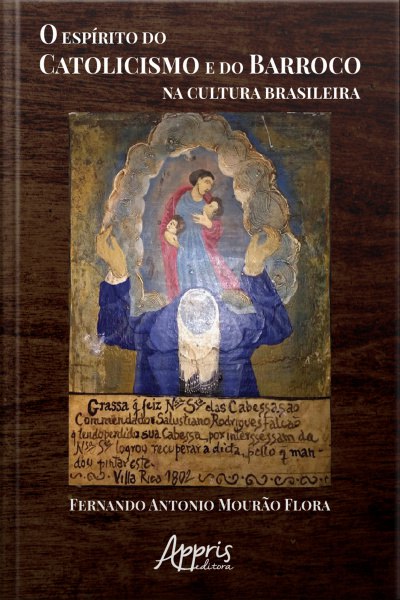 O ESPÍRITO DO
CATOLICISMO E DO BARROCO
NA CULTURA BRASILEIRA
Grassa q̃ feiz Nª Sª das Cabessas ao
Commendador Salustiano Rodrigues Falcão
q tendo perdido sua Cabessa, por interssessam da
Nª Sª logrou recuperar a dicta, pello q man-
dou pintar este.
Villa Rica 1802
FERNANDO ANTONIO MOURÃO FLORA
Appris
editora